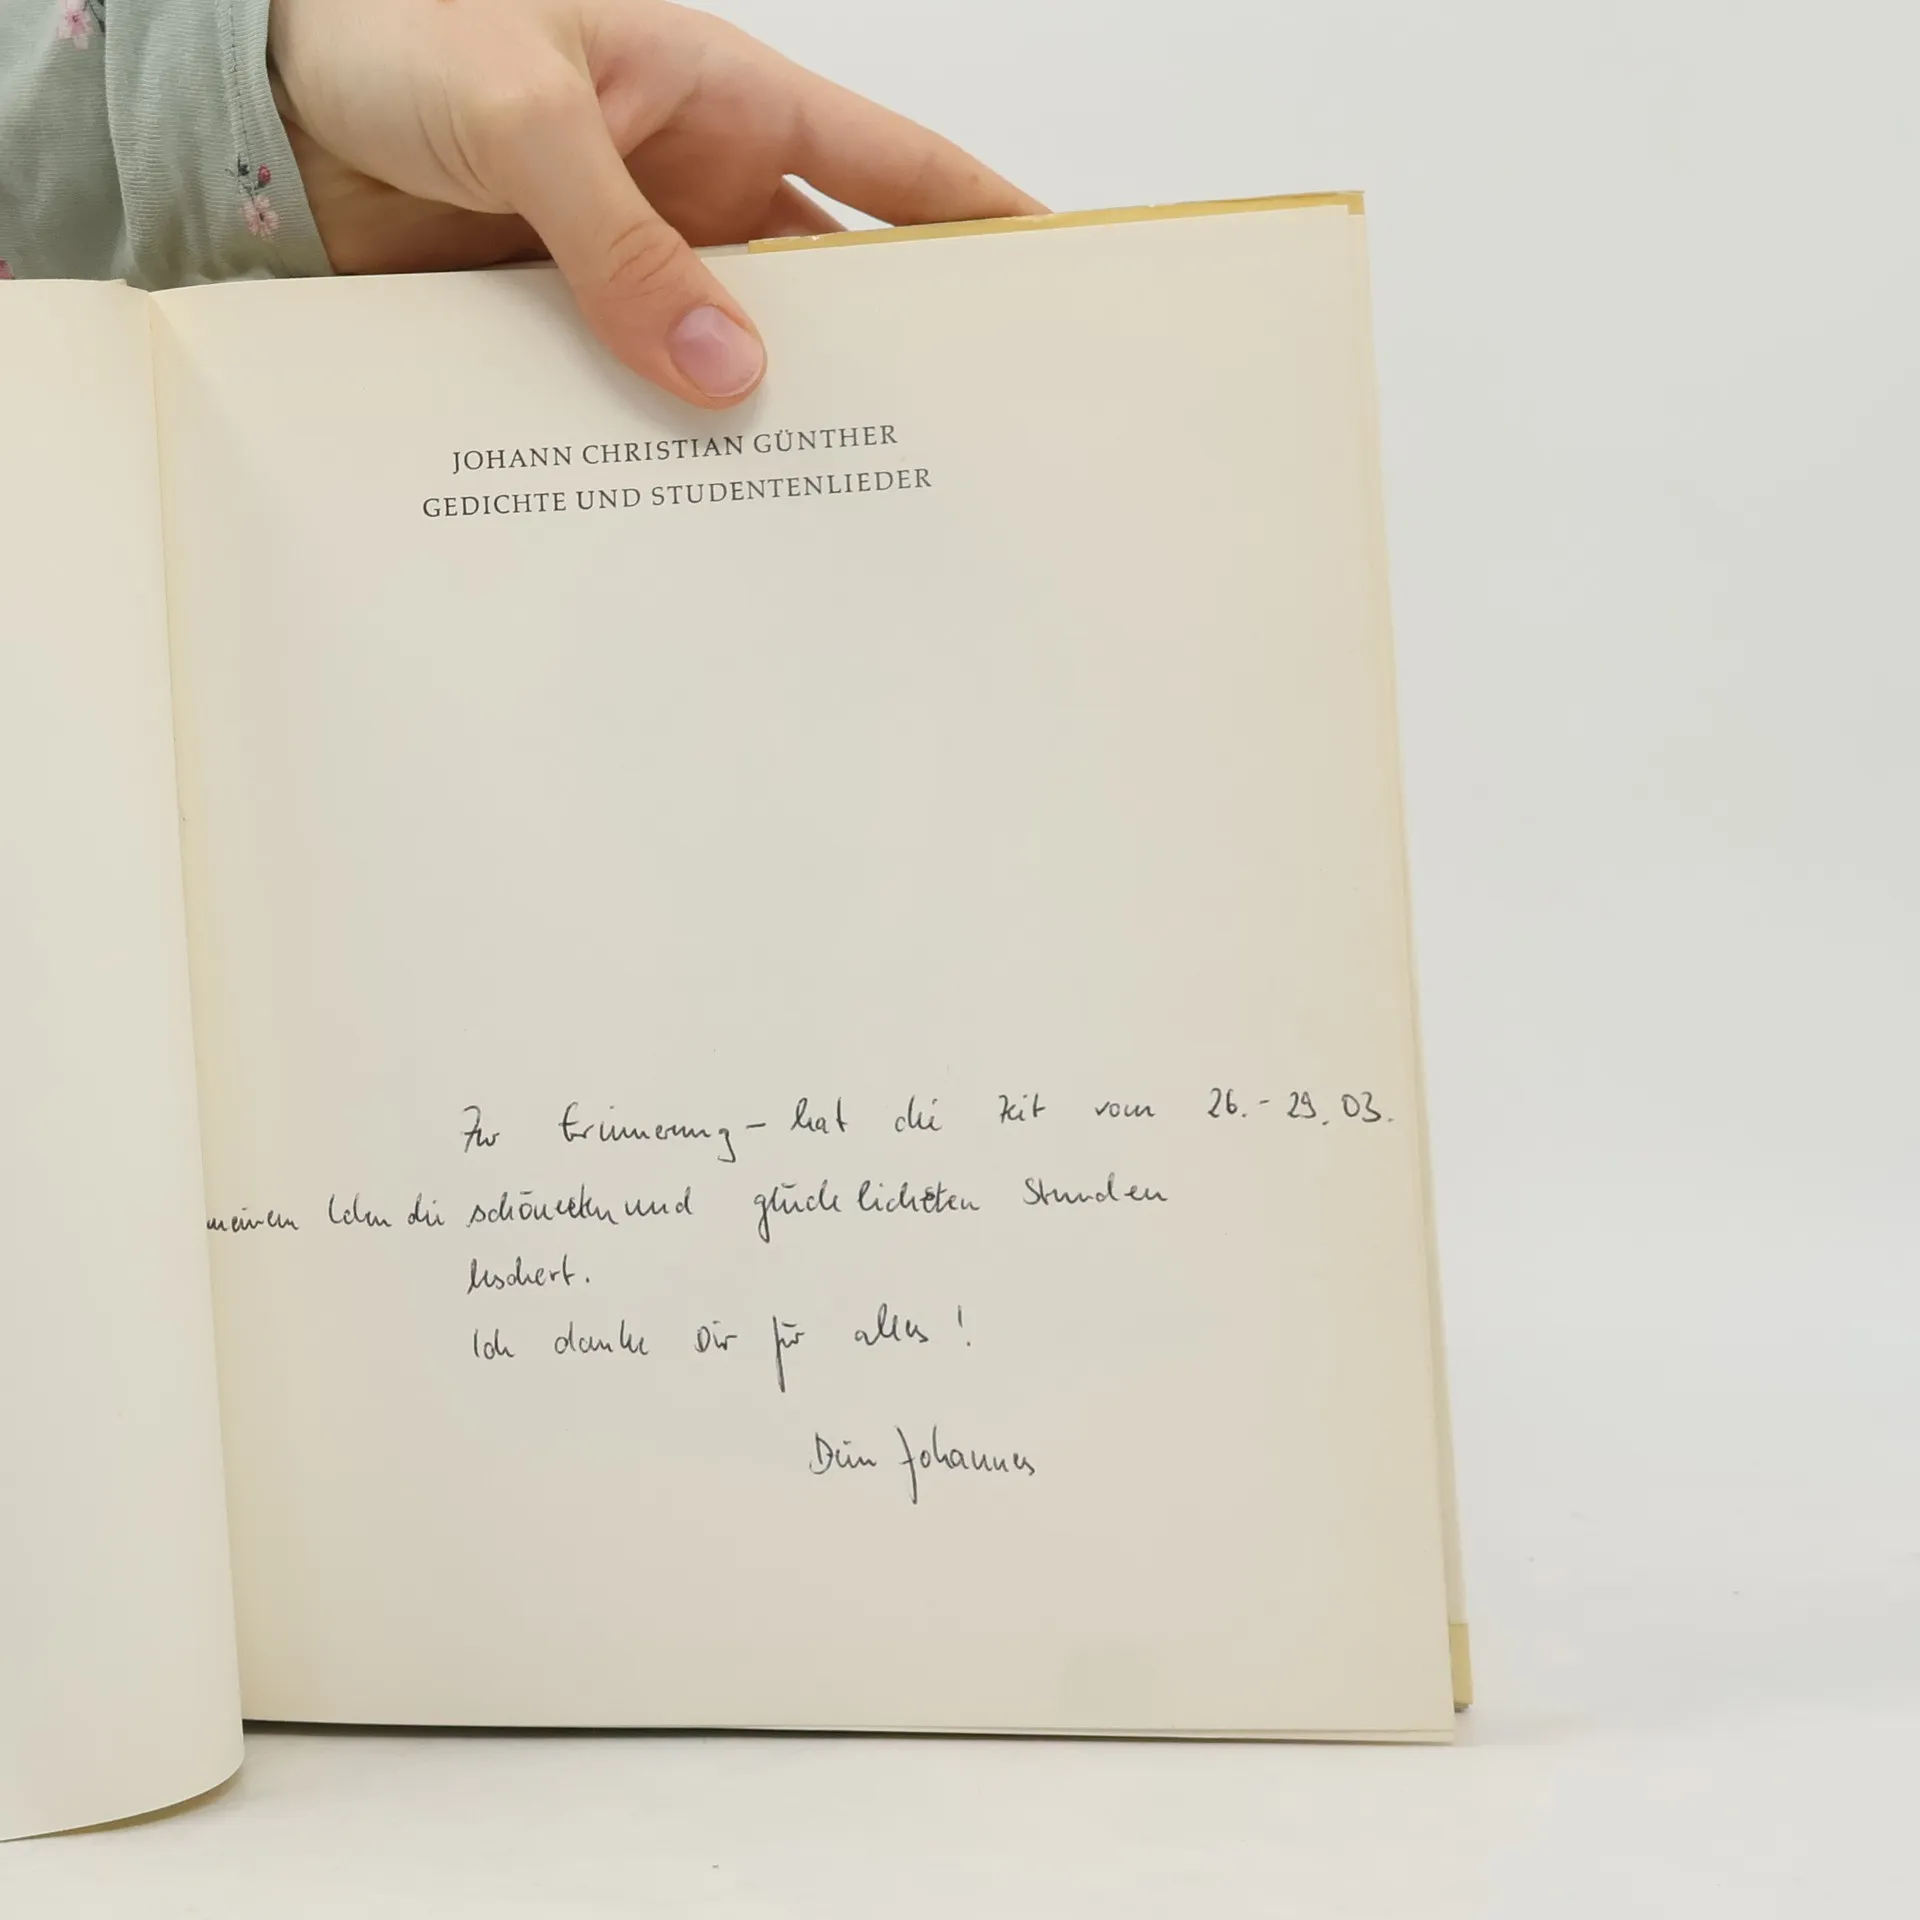 JOHANN CHRISTIAN GÜNTHER
GEDICHTE UND STUDENTENLIEDER
Zur Erinnerung – hat die Zeit vom 26.- 29.03.
meinem Leben die schönsten und glücklichsten Stunden
beschert.
Ich danke Dir für alles!
Dein Johannes